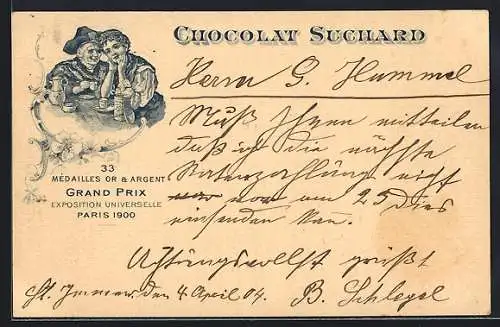 CHOCOLAT SUCHARD
Herrn G. Hummel
Muß Ihnen mitteilen
daß ich die nächste
Ratenzahlung nicht
vor am 25 dies
einsenden kann.
Achtungsvollst grüßt
St. Immer, den 4 April 04. B. Schlegel
33
MÉDAILLES OR & ARGENT
GRAND PRIX
EXPOSITION UNIVERSELLE
PARIS 1900